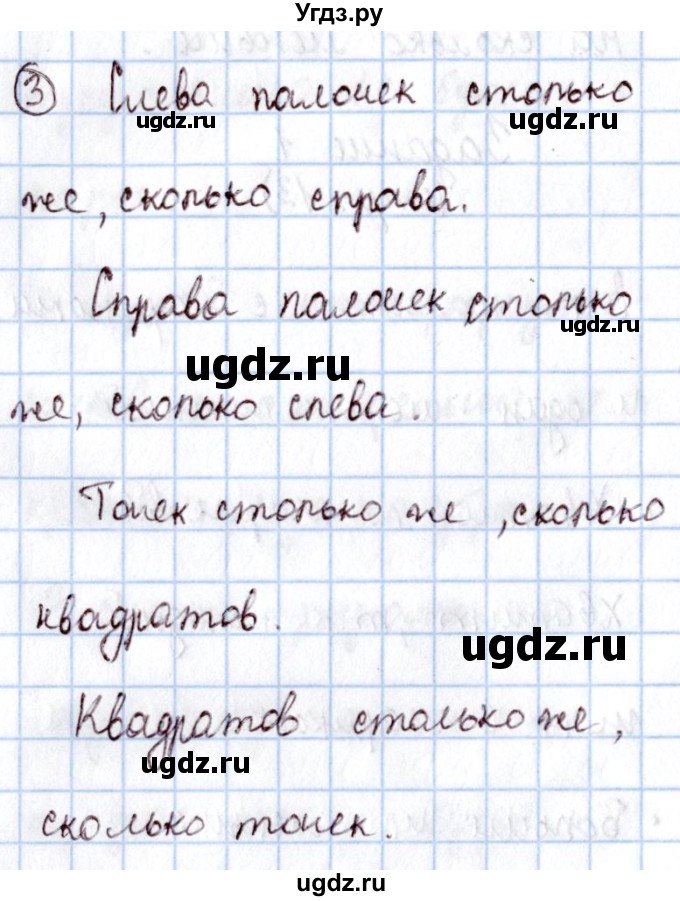 Угдз.ру
③ Слева палочек столько
ugdz.ru ugdz.ru
же, сколько справа.
Справа палочек столько
ugdz.ru ugdz.ru
же, сколько слева.
Точек столько же, сколько
квадратов.
ugdz.ru
Квадратов столько же,
ugdz.ru
сколько точек.
ugdz.ru